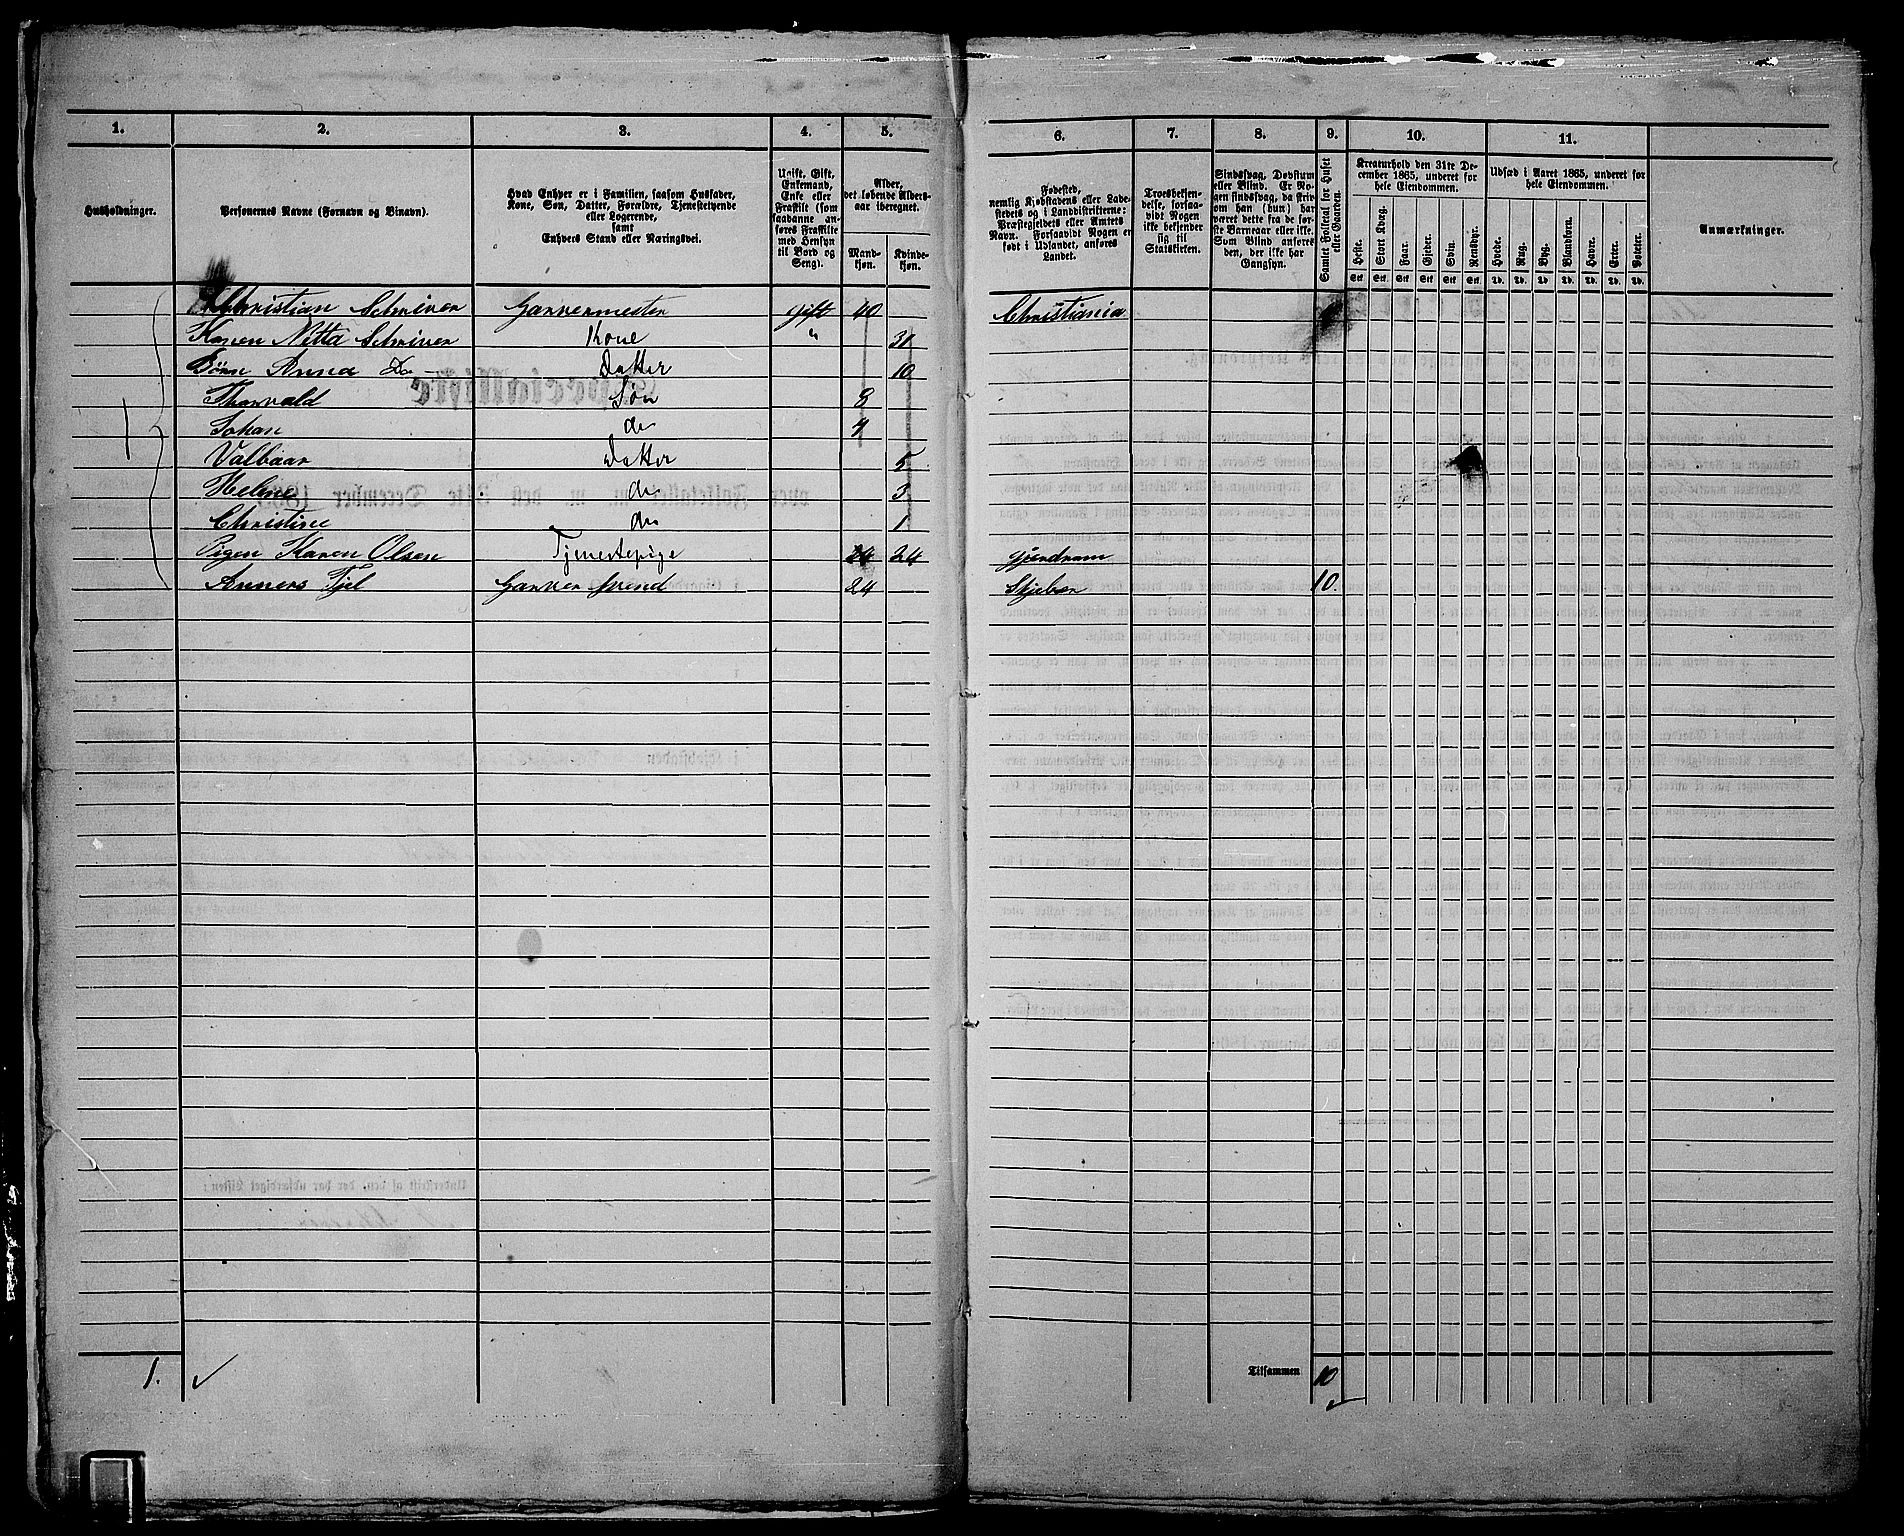 1. 2. 3. 4. 5. 6. 7. 8. 9. 10. 11.
Husholdninger.
Personernes Navne (Fornavn og Binavn).
Hvad Enhver er i Familien, saasom Husfader,
Kone, Søn, Datter, Forældre, Tjenestetyende
eller Logerende,
samt
Enhvers Stand eller Næringsvei.
Ugift, Gift,
Enkemand,
Enke eller
Fraskilt (som
saadanne an-
føres Fraskilte
med Hensyn
til Bord og
Seng).
Alder,
det løbende Alders-
aar iberegnet.
Mand-
kjøn.
Kvinde-
kjøn.
Fødested,
nemlig Kjøbstadens eller Lade-
stedets og i Landdistrikterne:
Præstegjeldets eller Amtets
Navn. Forsaavidt Nogen er
født i Udlandet, anføres
Landet.
Troesbekjen-
delse, forsaa-
vidt Nogen
ikke bekjender
sig til
Statskirken.
Sindssvag, Døvstum
eller Blind. Er No-
gen sindssvag, da skriv
om han (hun) har
været dette fra de før-
ste Barneaar eller ikke.
Som Blind anføres
den, der ikke har
Gangsyn.
Samlet Folketal for Huset
eller Gaarden.
Kreaturhold den 31te De-
cember 1865, underet for
hele Eiendommen.
Heste. Stort Kvæg. Faar. Gjeder. Svin. Rensdyr.
Stk. Stk. Stk. Stk. Stk. Stk.
Udsæd i Aaret 1865, underet for
hele Eiendommen.
Hvede. Rug. Byg. Blandkorn. Havre. Erter. Poteter.
Td. Td. Td. Td. Td. Td. Td.
Anmærkninger.
Christian Schriver Garvermester Gift 40 Christiania
Karen Netta Schriver Kone " 31
Børn Anna Do Datter 10
Thorvald Søn 8
Johan do 7
Valbaar Datter 5
Helene do 3
Christine do 1
Pigen Karen Olsen Tjenestepige 24 24 Gjerdrum
Anners Fjel Garver Svend 24 Skjeber 10.
1. Tilsammen 10